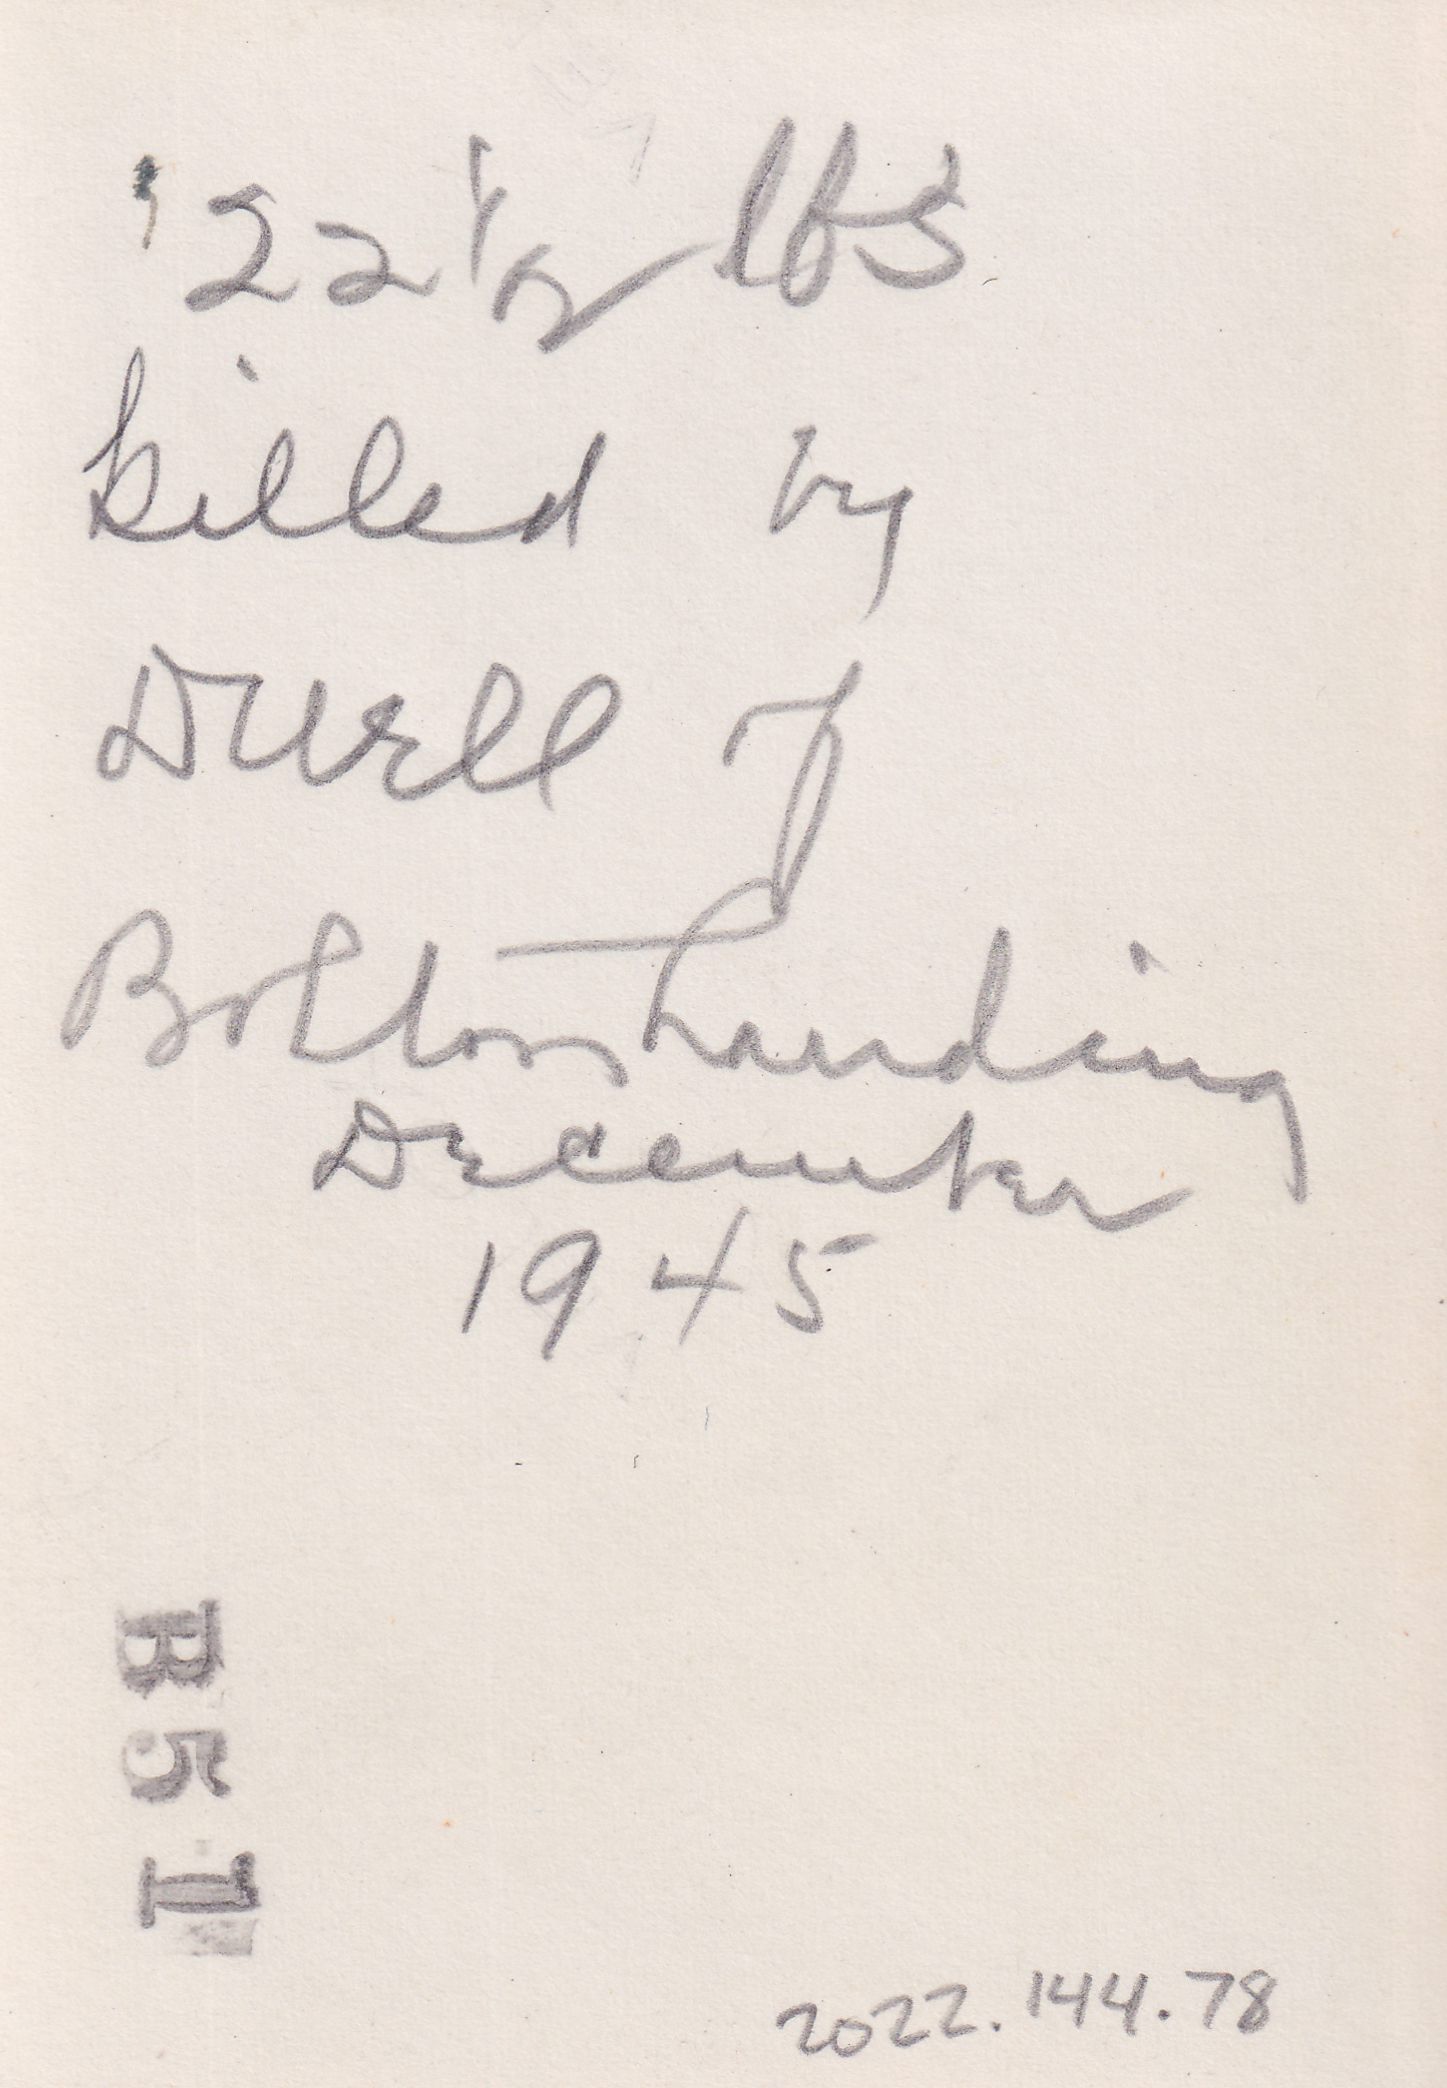 22 1/2 lbs
killed by
Durell of
Bolton Landing
December
1945
B51
2022.144.78